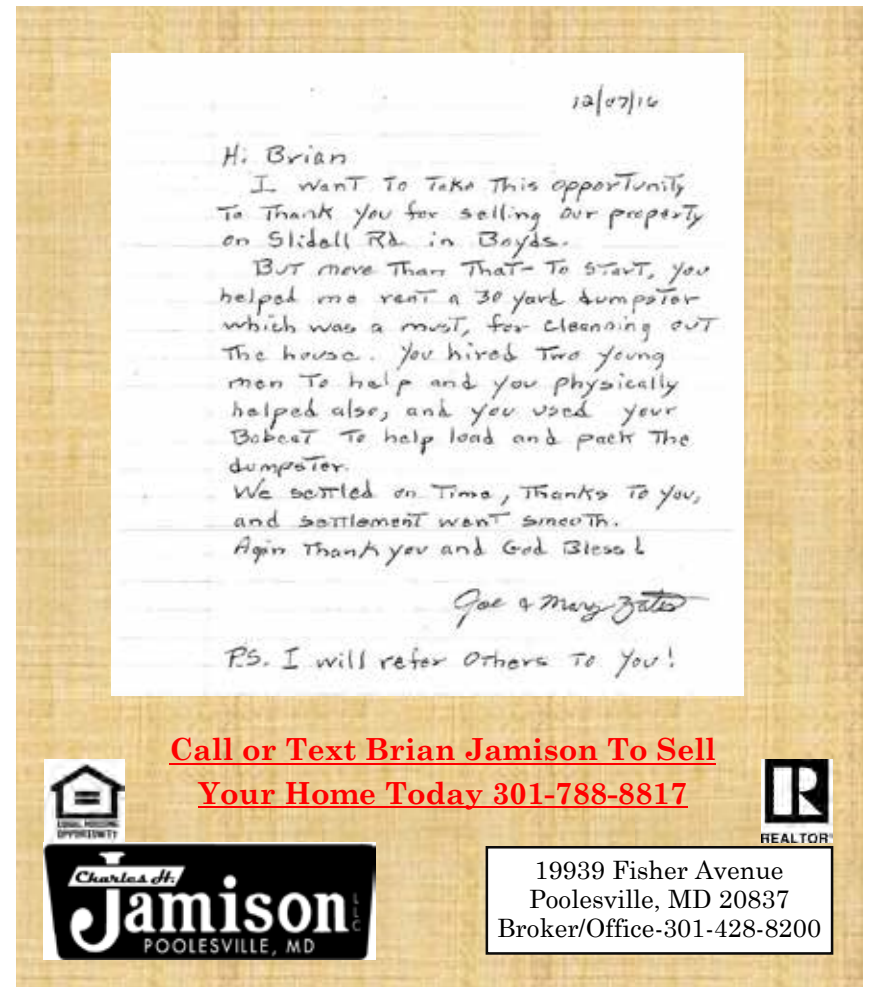 12/07/16
Hi Brian
I want to take this opportunity
to thank you for selling our property
on Slidell Rd. in Boyds.
But more than that- to start, you
helped me rent a 30 yard dumpster
which was a must, for cleanning out
the house. You hired two young
men to help and you physically
helped also, and you used your
Bobcat to help load and pack the
dumpster.
We settled on time, thanks to you,
and settlement went smooth.
Agin thank you and God Bless!
Joe & Mary
P.S. I will refer others to you!
Call or Text Brian Jamison To Sell
Your Home Today 301-788-8817
EQUAL HOUSING
OPPORTUNITY
R
REALTOR®
Charles H.
Jamison LLC
POOLESVILLE, MD
19939 Fisher Avenue
Poolesville, MD 20837
Broker/Office-301-428-8200